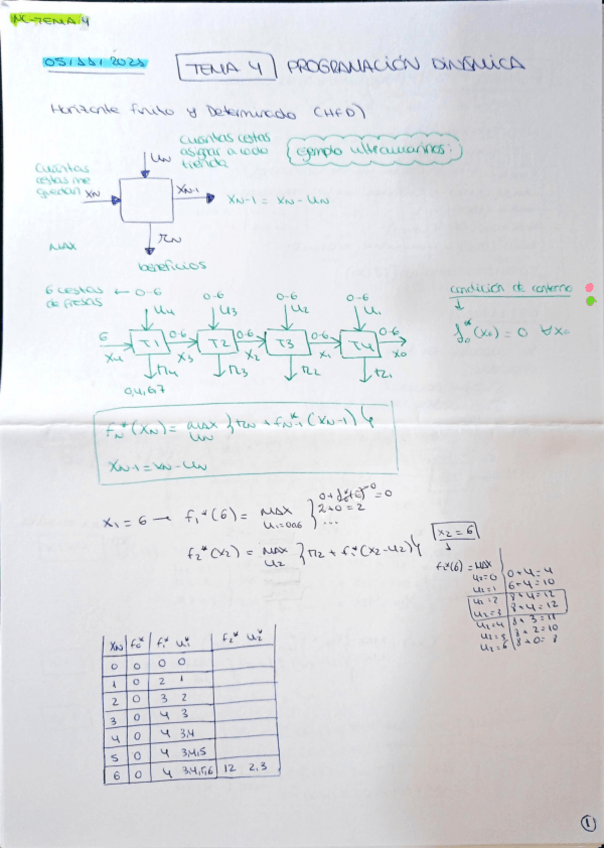 NC-TEMA 4
05/11/2021 TEMA 4 PROGRAMACIÓN DINÁMICA
Horizonte finito y Determinado (HFD)
cuántas cestas asignar a cada tienda
ejemplo ultramarinos:
cuántas cestas me quedan
UN
XN
XN-1
XN-1 = XN - UN
rN
MAX
beneficios
6 cestas de fresas ← 0-6
0-6 0-6 0-6
U4 U3 U2 U1
6 T1 0-6 T2 0-6 T3 0-6 T4 0-6
X4 X3 X2 X1 X0
r4 r3 r2 r1
0,4,6,7
condición de contorno
↓
f0*(x0) = 0 ∀x0
fN*(XN) = MAX UN { rN + fN-1*(XN-1) }
XN-1 = XN - UN
X1 = 6 → f1*(6) = MAX U1=0..6 { 0 + f0*(6) = 0
2+0 = 2
...
f2*(x2) = MAX U2 { r2 + f1*(x2-u2) }
X2 = 6
↓
f2*(6) = MAX
U2=0 0+4=4
U2=1 6+4=10
U2=2 8+4=12
U2=3 8+4=12
U2=4 8+3=11
U2=5 8+2=10
U2=6 8+0=8
XN f0* f1* U1* f2* U2*
0 0 0 0
1 0 2 1
2 0 3 2
3 0 4 3
4 0 4 3,4
5 0 4 3,4,5
6 0 4 3,4,5,6 12 2,3
1